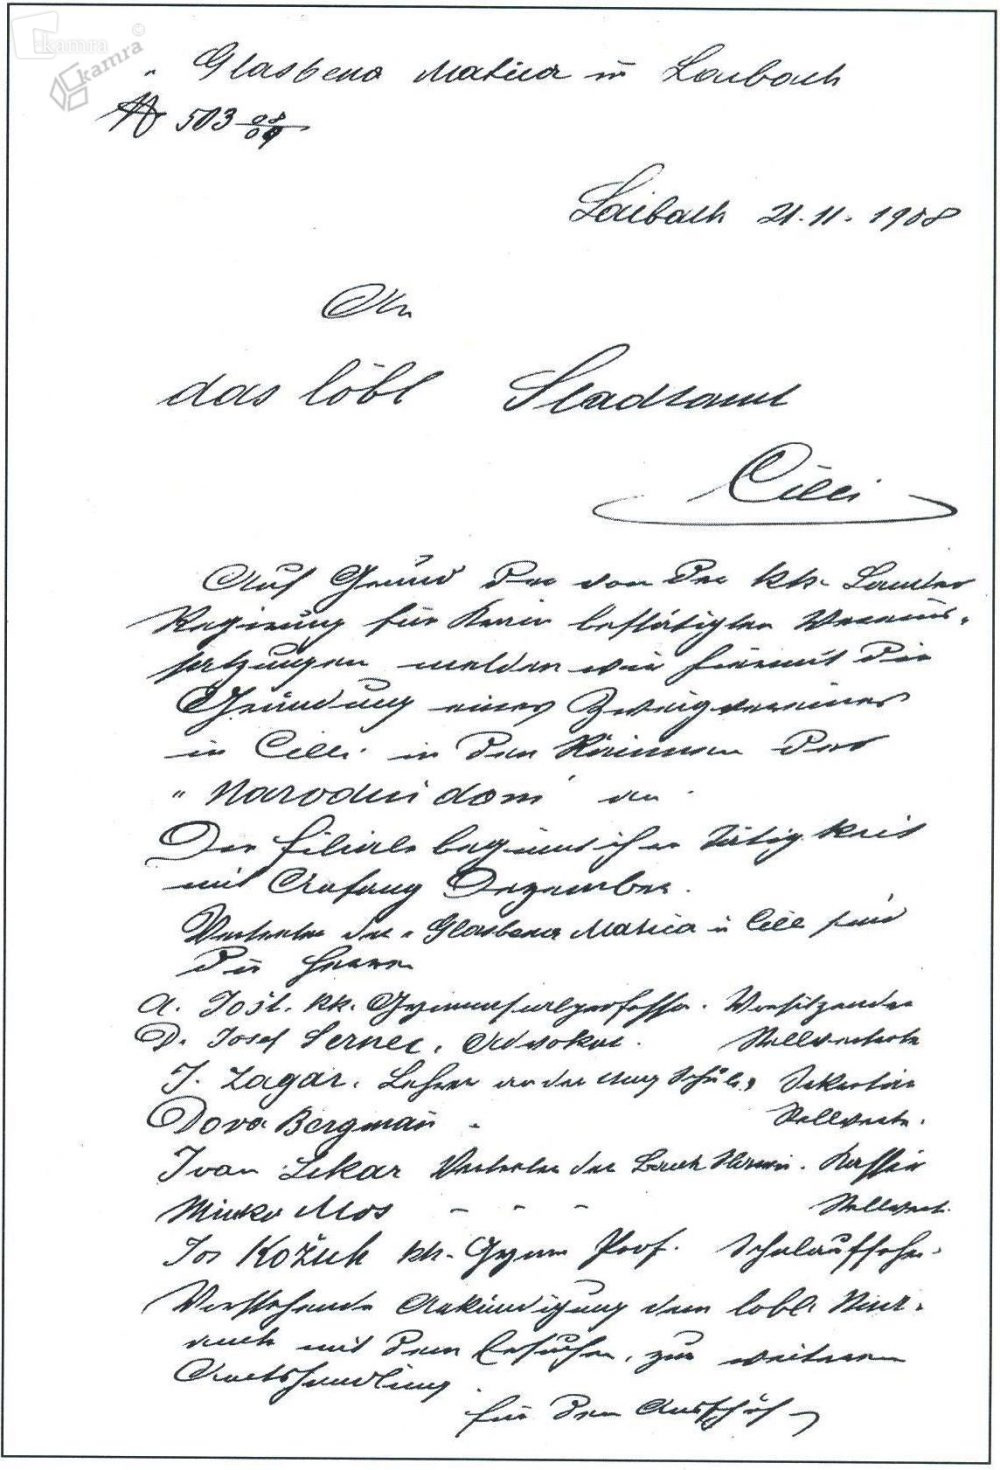 kamra
kamra ©
„ Glasbena Matica in Laibach
N 503 08/09
Laibach 21. 11. 1908
An
das löbl Stadtamt
Cilli
Auf Grund der von der kk. Landes
Regierung für Krain bestätigten Vereins-
satzungen melden wir hiermit die
Gründung eines Zweigvereines
in Cilli in den Räumen des
„ Narodni dom " an.
Die Filiale beginnt ihre Tätigkeit
mit Anfang Dezember.
Vertreter der „ Glasbena Matica in Cilli sind
die Herren
A. Jošt. kk. Gymnasialprofessor. Vorsitzender
D. Josef Sernec, Advokat. Stellvertreter
J. Zagar, Lehrer an der Schule, Sekretär
Dova Bergman Stellvertr.
Ivan Likar Vertreter der Bank Slavia. Kassier
Mirko Mos - - - Stellvertr.
Jos Kožuh kk. Gymn Prof. Schulaufseher.
Vorstehende Ankündigung dem löbl.
amte mit dem Ersuchen, zur weiteren
Amtshandlung.
für den Ausschuß